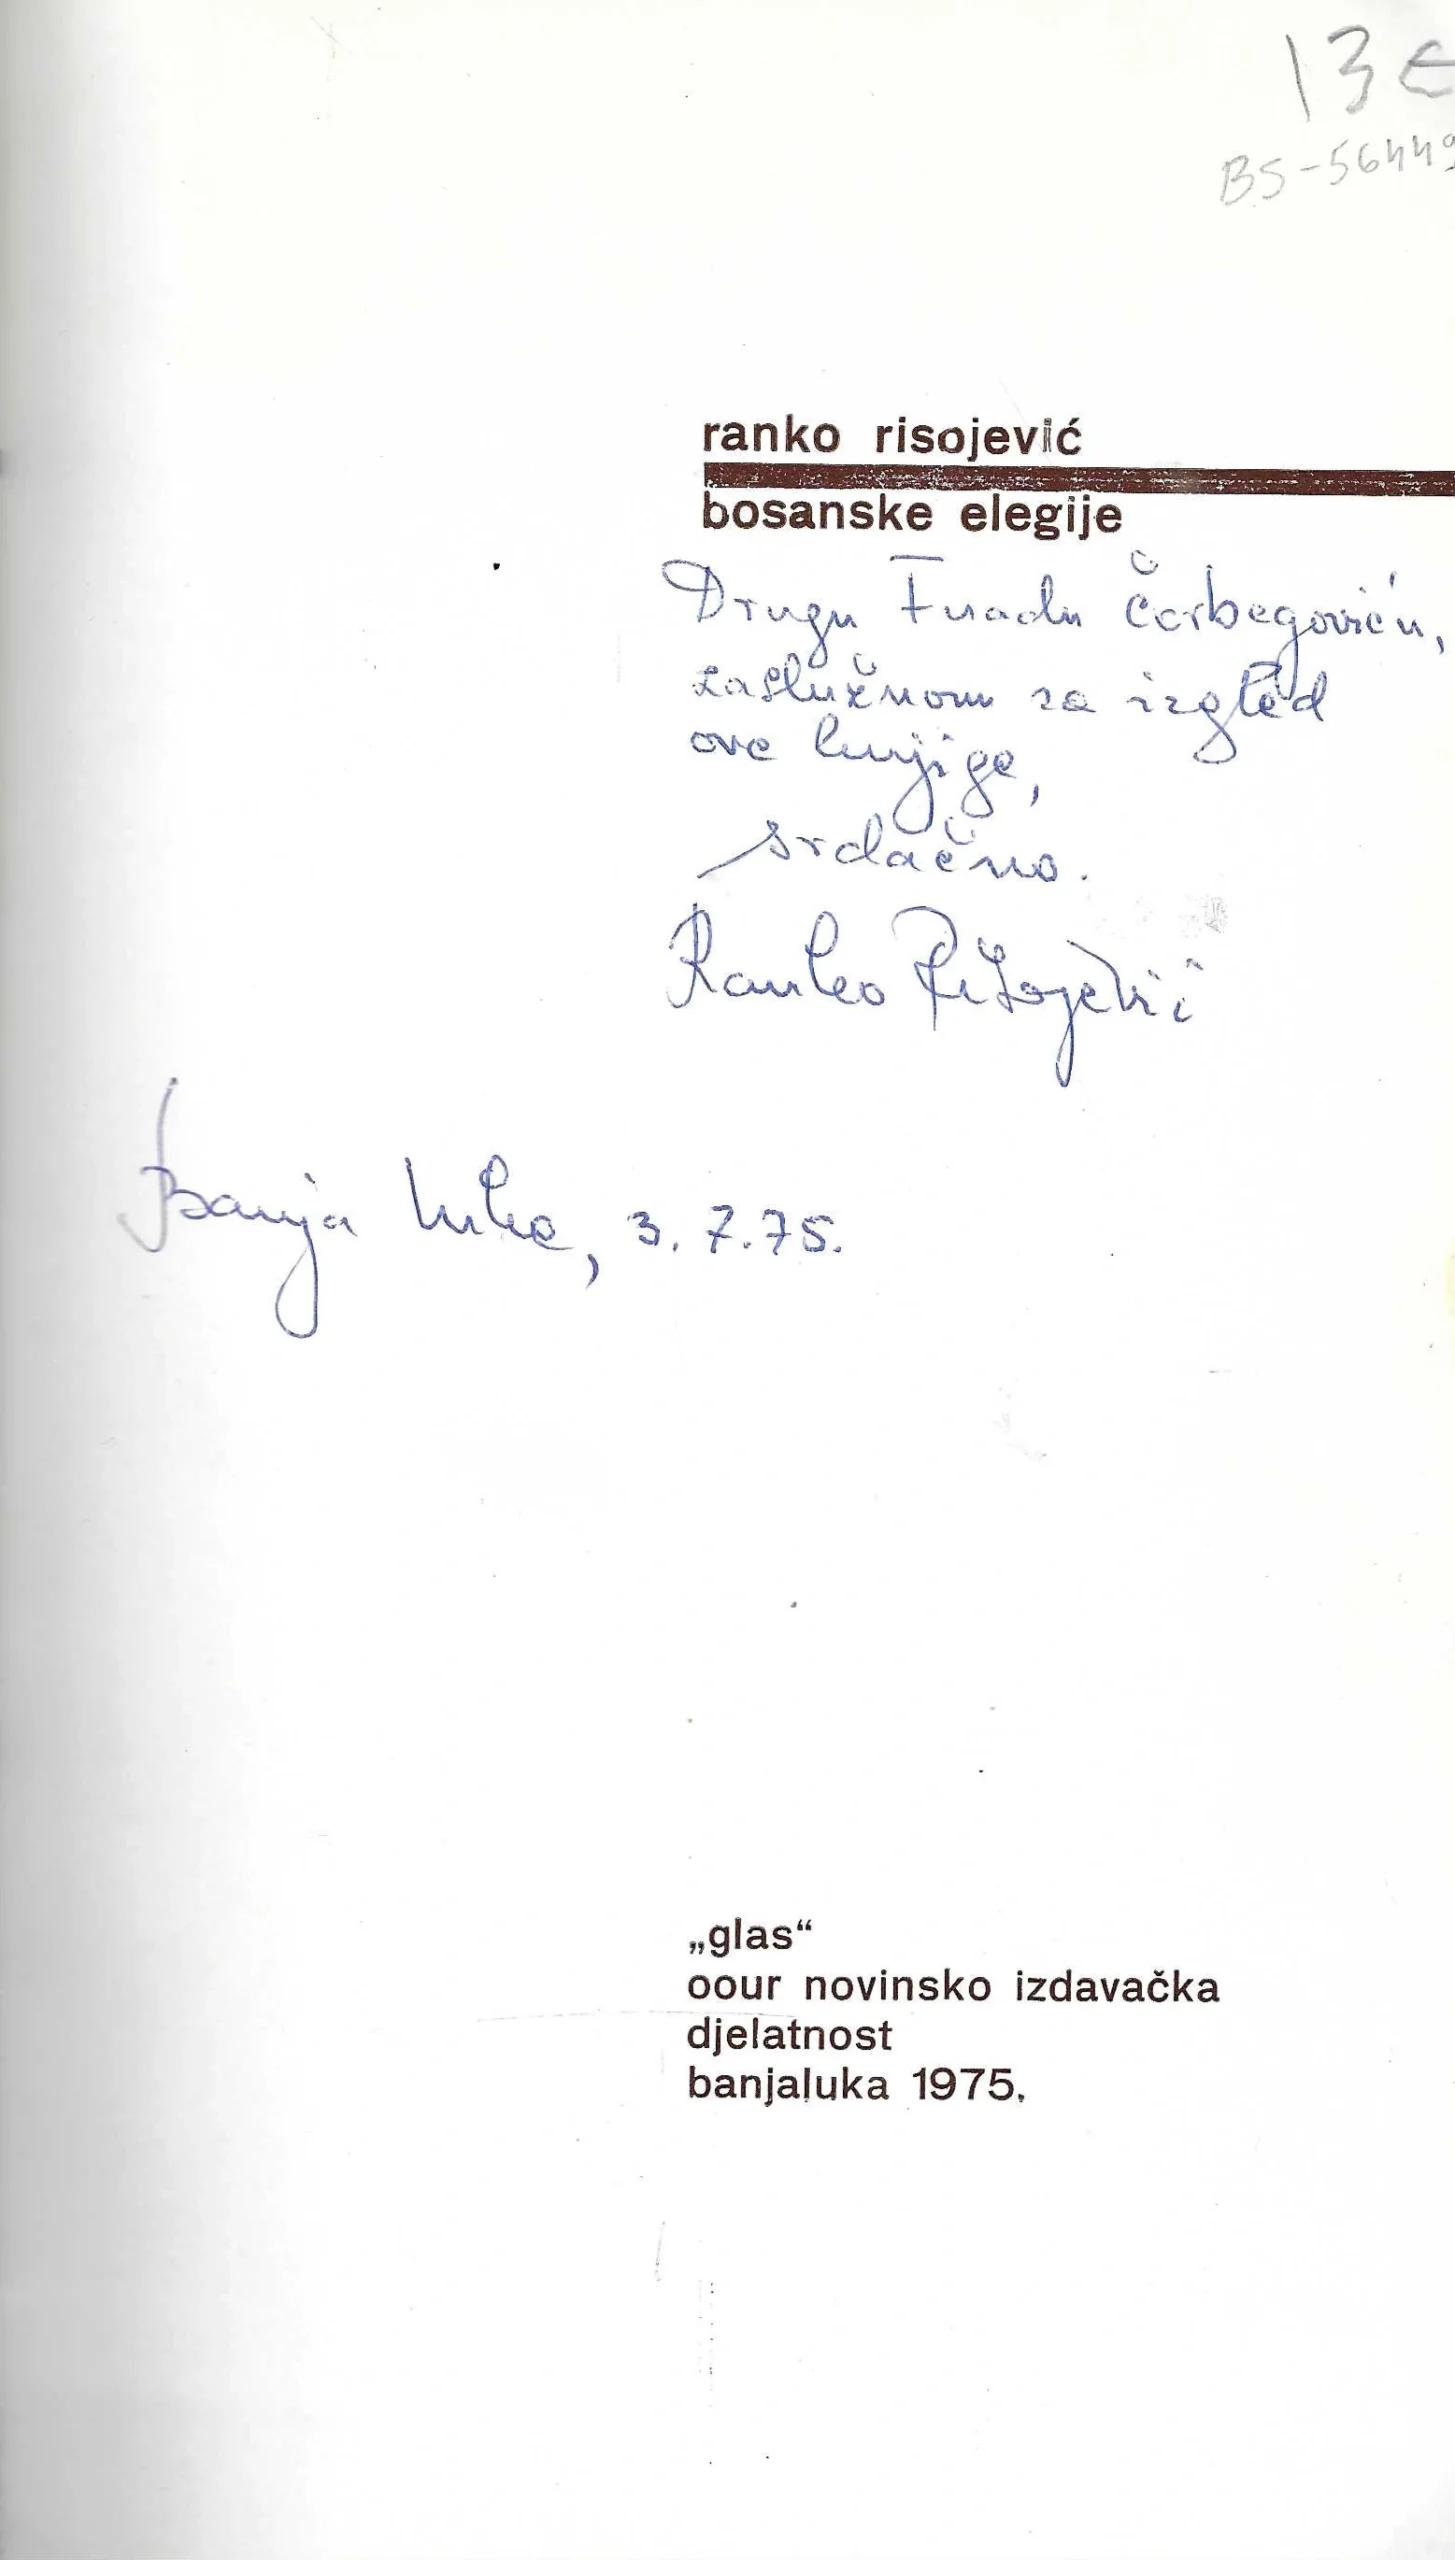 13 €
BS-56449
ranko risojević
bosanske elegije
Drugu Fuadu Čorbegoviću,
zaslužnom za izgled
ove knjige,
srdačno.
Ranko Risojević
Banja Luka, 3.7.75.
„glas“
oour novinsko izdavačka
djelatnost
banjaluka 1975.